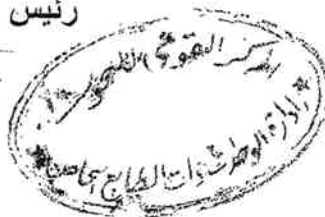 رئيس
المركز القومي للبحوث
إدارة الوظائف ذات الطابع الخاص